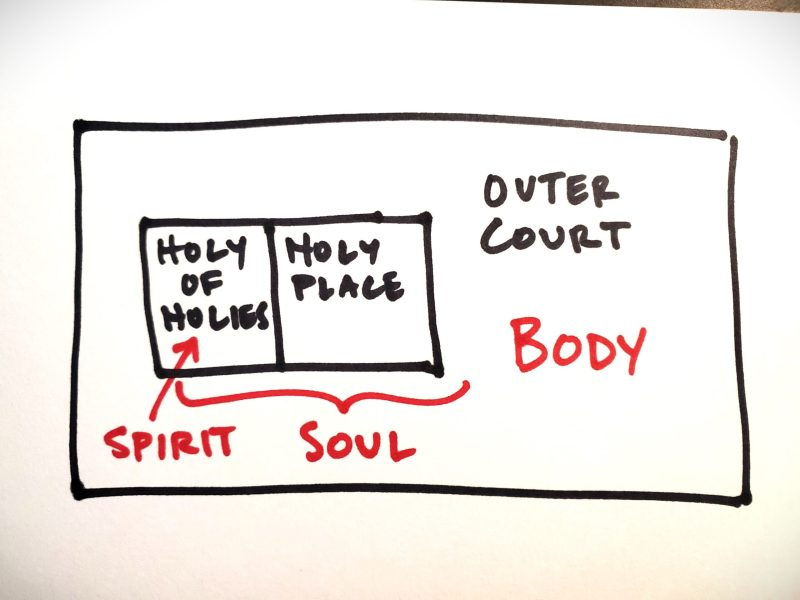 OUTER
COURT
HOLY
OF
HOLIES
HOLY
PLACE
BODY
SPIRIT
SOUL